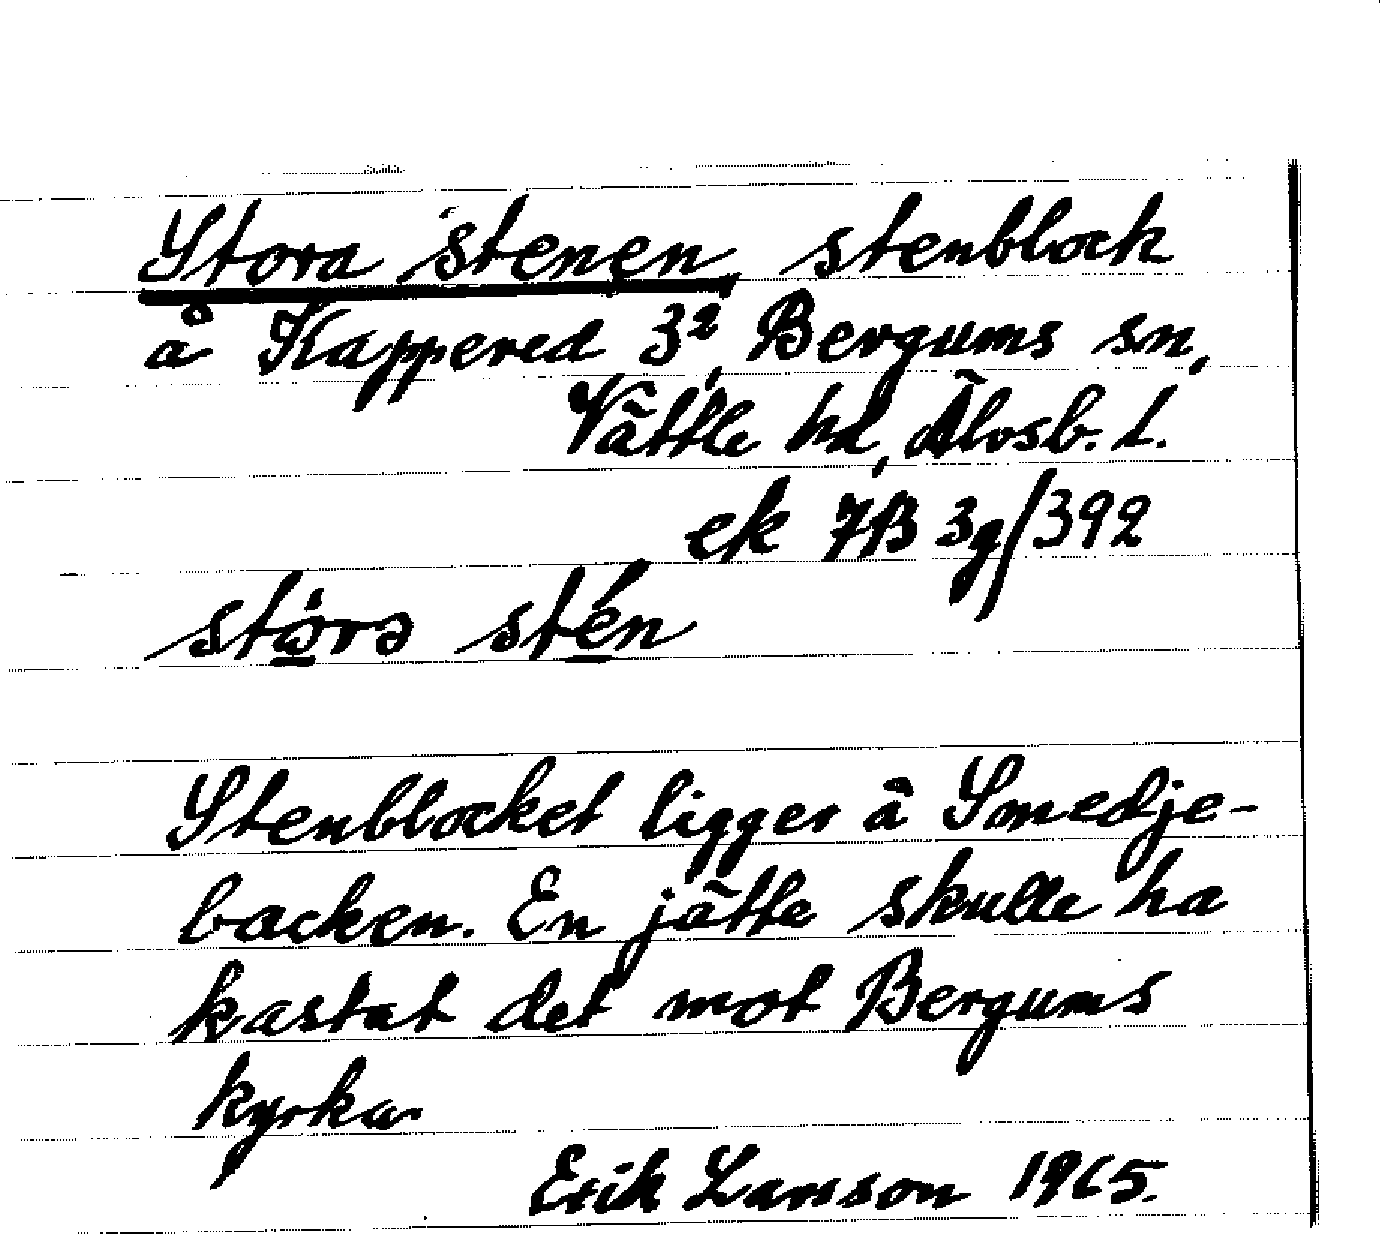 Stora stenen, stenblock
å Kappered 3², Bergums sn,
Vättle hd, Älvsb. l.
ek 7B 3g/392
stórə stén
Stenblocket ligger å Smedje-
backen. En jätte skulle ha
kastat det mot Bergums
kyrka
Erik Larsson 1965.